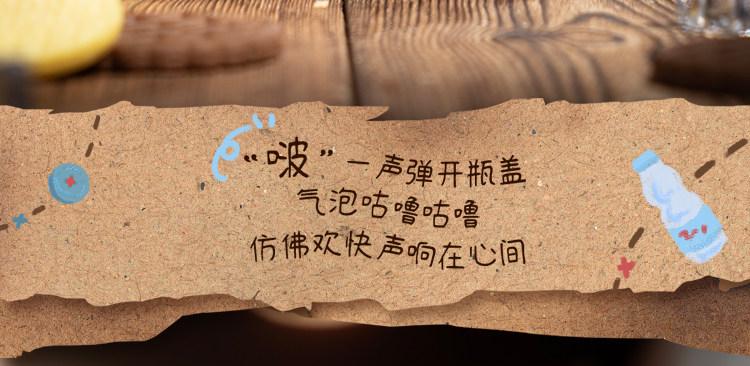 “啵”一声弹开瓶盖
气泡咕噜咕噜
仿佛欢快声响在心间